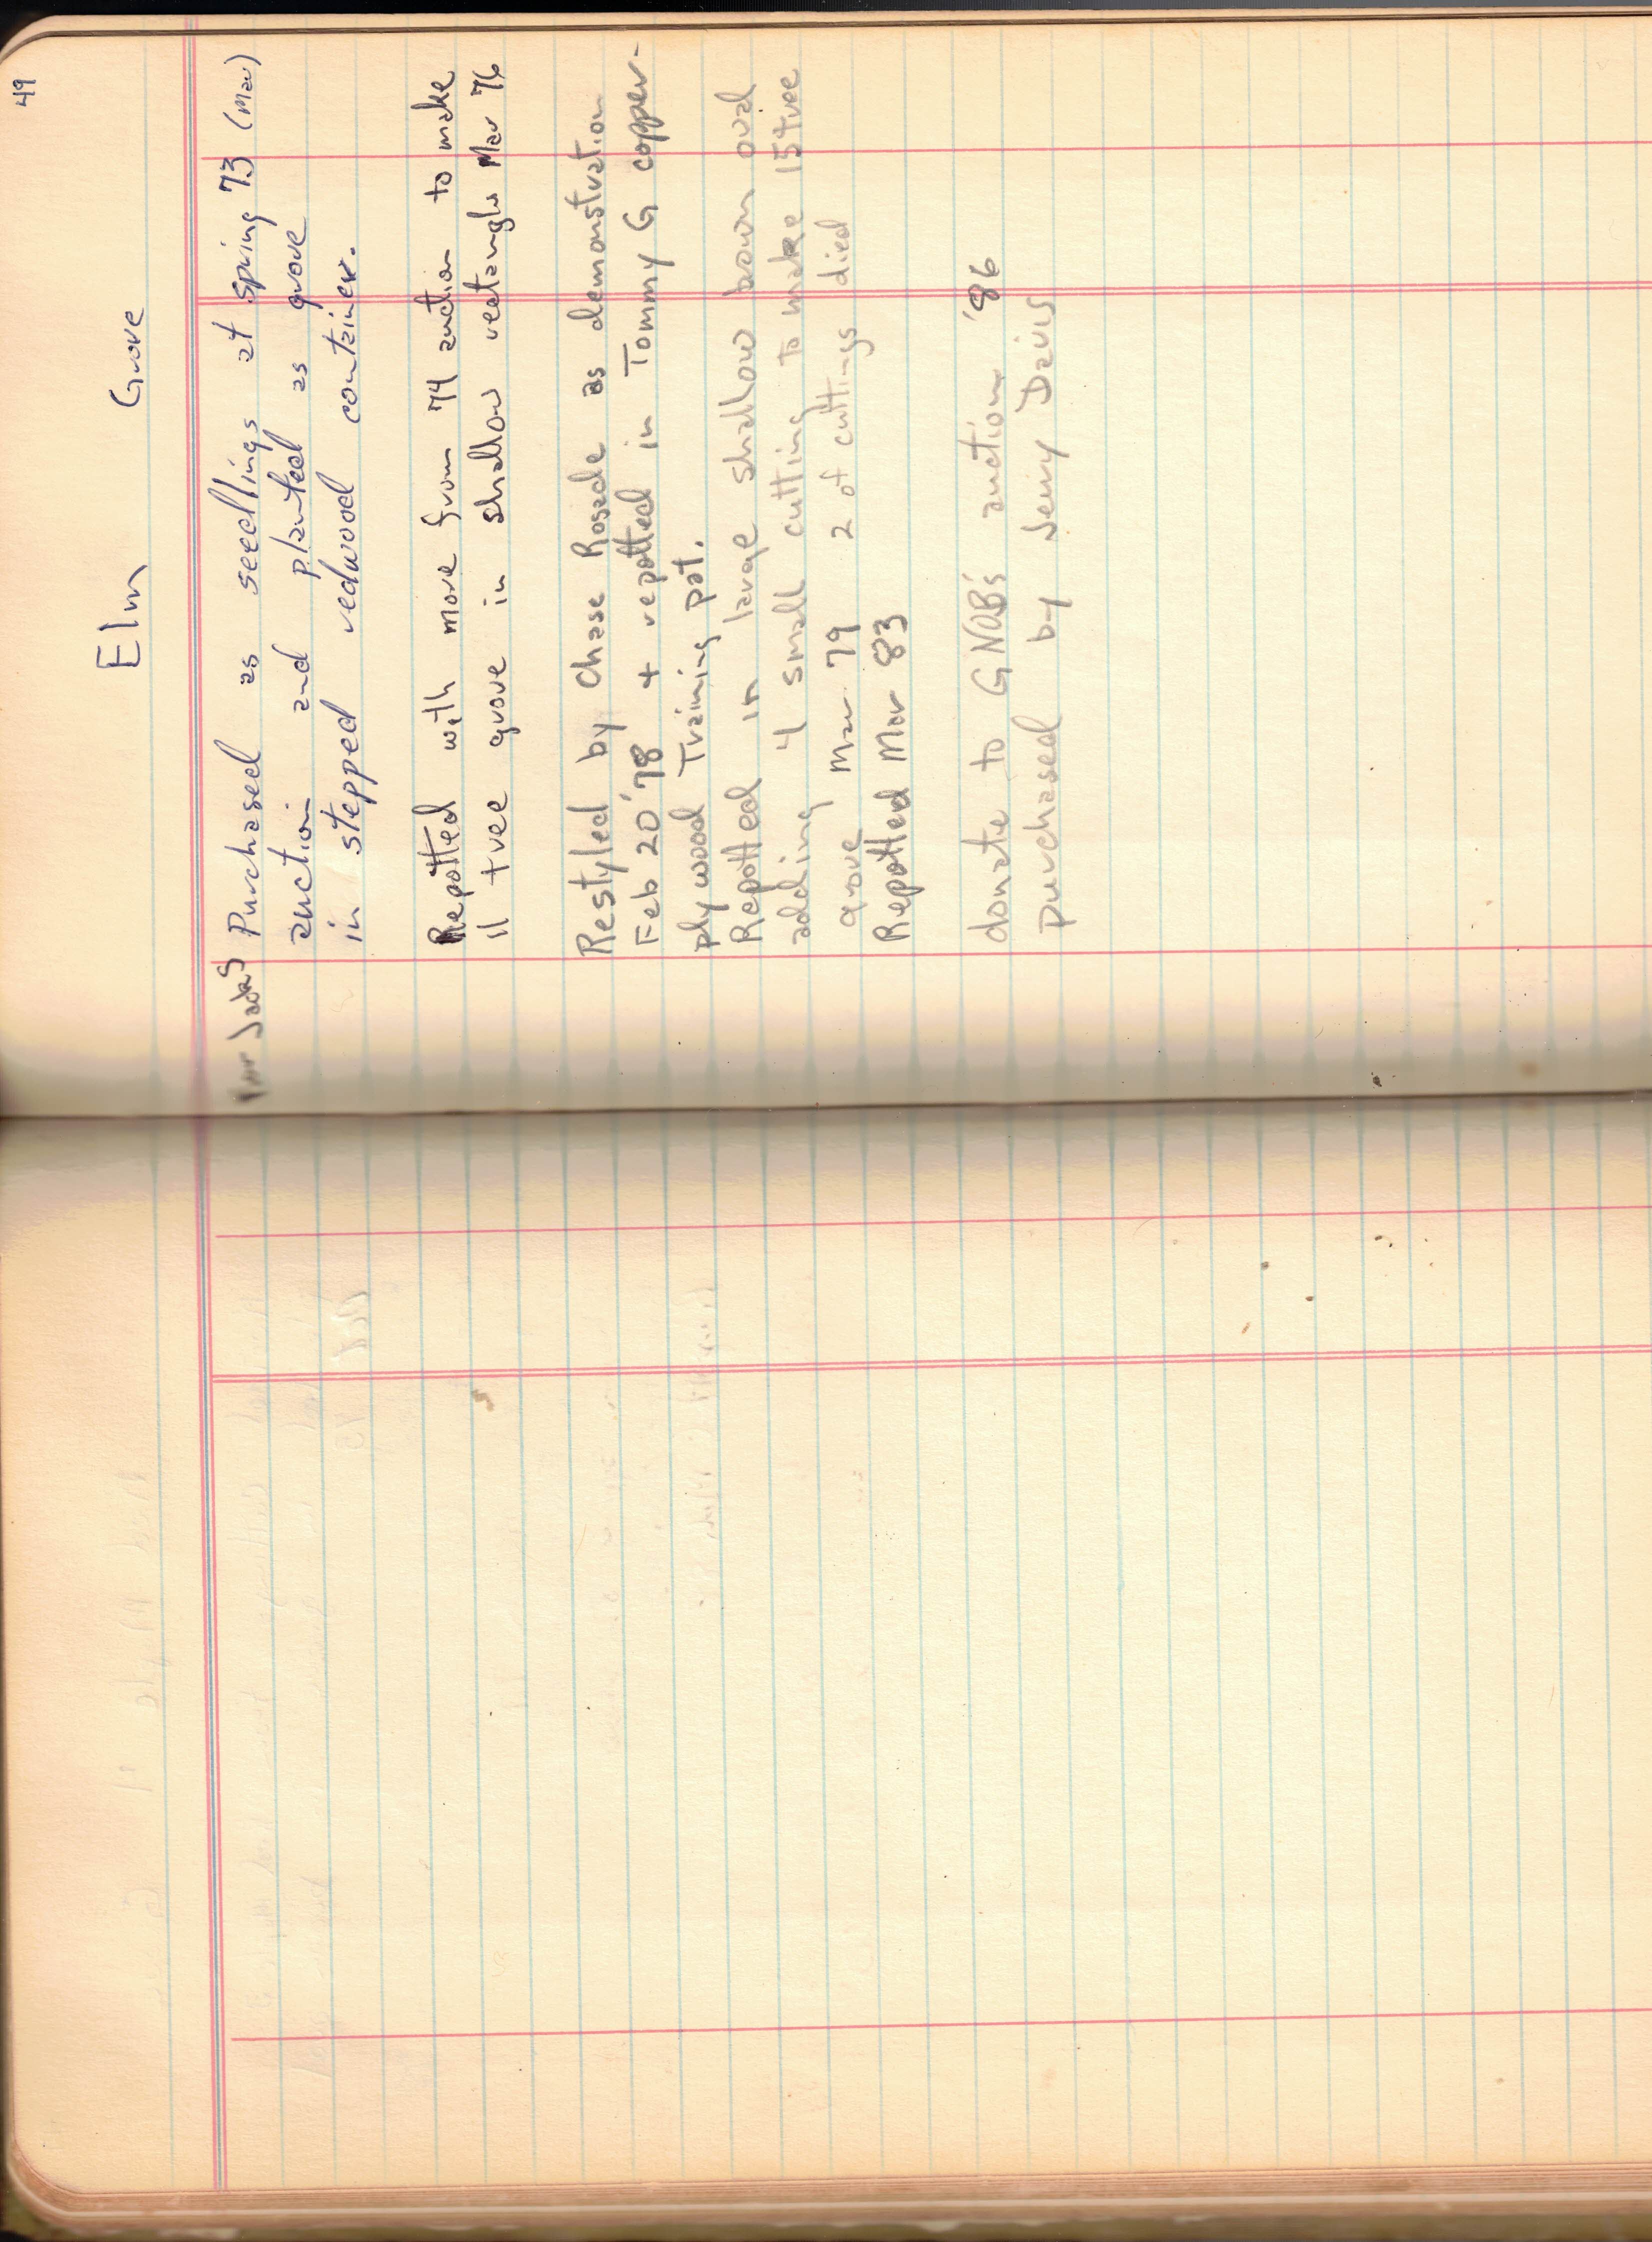 49
Elm Grove
Jack S
Purchased as seedlings at spring 73 (Mar)
auction and planted as grove
in stepped redwood container.
Repotted with more from 74 auction to make
11 tree grove in shallow rectangle Mar 76
Restyled by Chase Rosade as demonstration
Feb 20 '78 + repotted in Tommy G copper-
plywood Training pot.
Repotted in large shallow brown oval
adding 4 small cutting to make 15 tree
grove Mar 79 2 of cuttings died
Repotted Mar 83
donate to GNOBS's auction '86
purchased by Jerry Davis